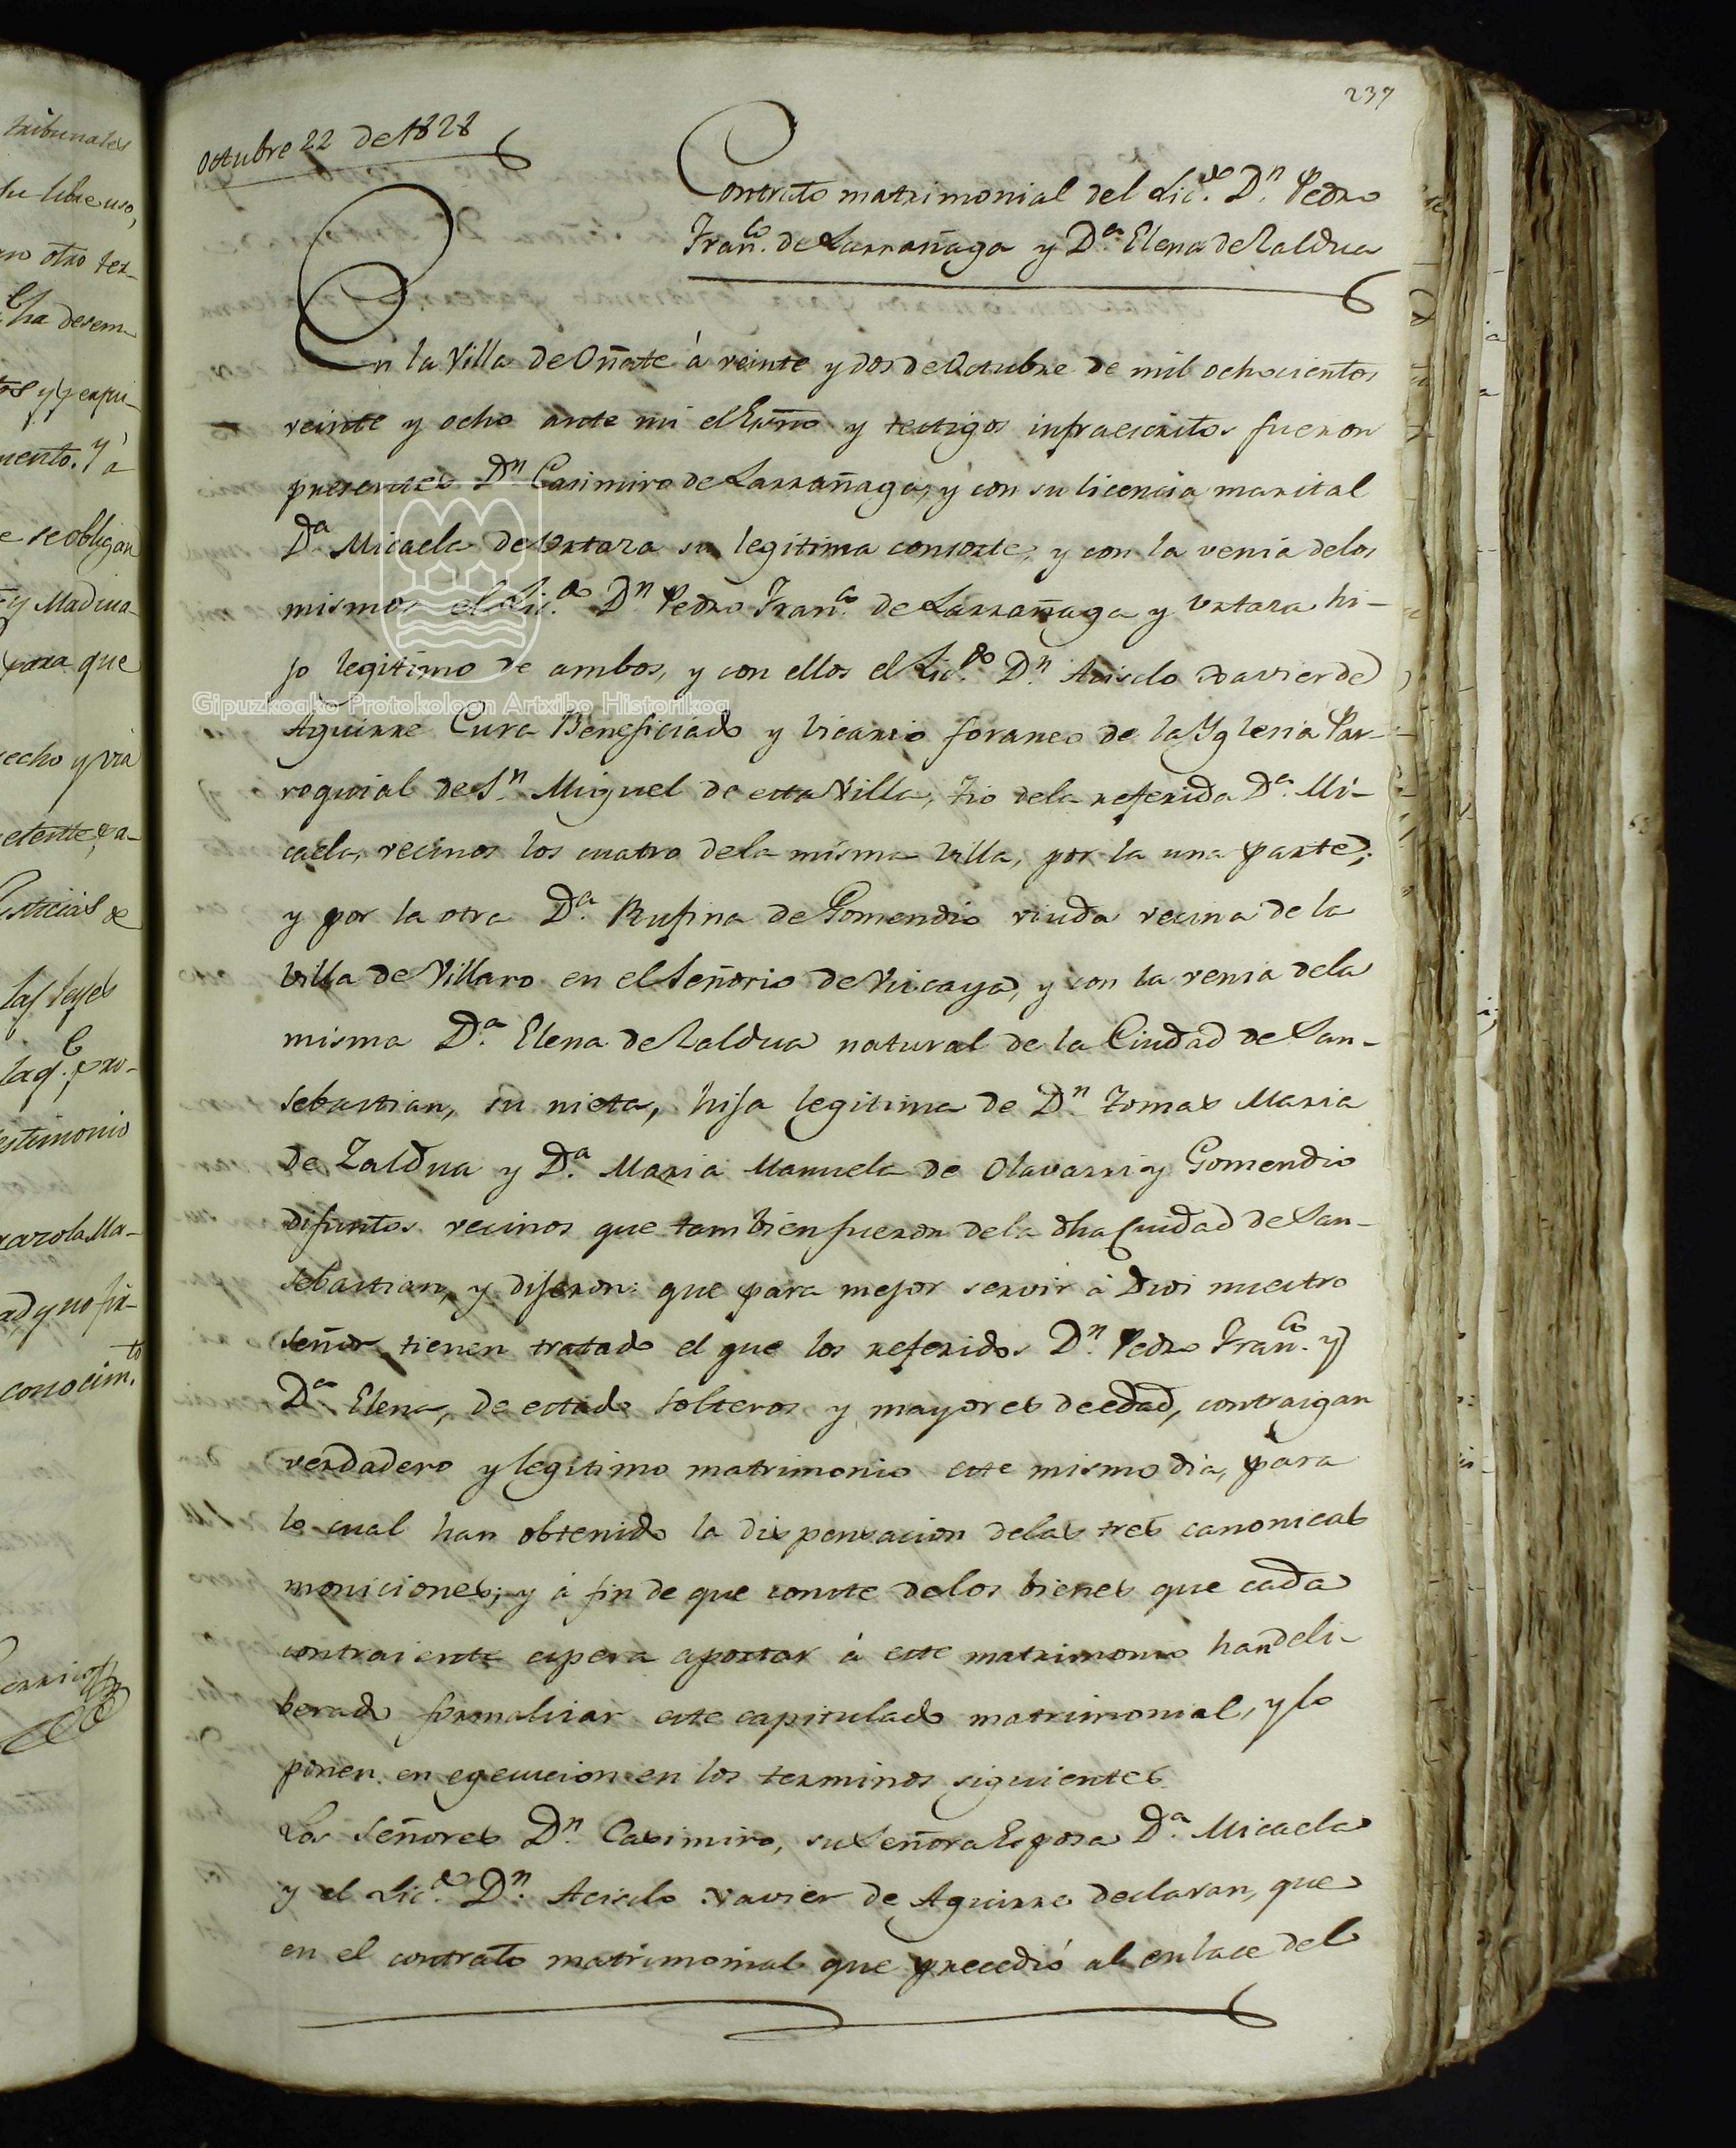 tribunales
su libre uso,
otro ter-
ha desem-
mento. Y á
se obligan
y Madina
para que
echo y via
las leyes
testimonio
conocim.to
237
Octubre 22 de 1828
Contrato matrimonial del Lic.do D.n Pedro
Fran.co de Larrañaga y D.a Elena de Zaldua
En la Villa de Oñate á veinte y dos de Octubre de mil ochocientos
veinte y ocho ante mi el Esno y testigos infraescritos fueron
presentes D.n Casimiro de Larrañaga, y con su licencia marital
D.a Micaela de Urtaza su legitima consorte, y con la venia delos
mismos el Lic.do D.n Pedro Fran.co de Larrañaga y Urtaza hi-
jo legitimo de ambos, y con ellos el Lic.do D.n Acisclo Xavier de
Gipuzkoako Protokoloen Artxibo Historikoa
Aguirre Cura Beneficiado y Vicario foraneo de la Yglesia Par-
roquial de S.n Miguel de esta Villa, tio dela referida D.a Mi-
caela, vecinos los cuatro dela misma Villa, por la una parte;
y por la otra D.a Rufina de Gomendio viuda vecina de la
Villa de Villaro en el Señorio de Vizcaya, y con la venia dela
misma D.a Elena de Zaldua natural de la Ciudad de San-
sebastian, su nieta, hija legitima de D.n Tomas Maria
de Zaldua y D.a Maria Manuela de Olavarri y Gomendio
difuntos vecinos que tambien fueron dela dha Ciudad de San-
sebastian, y dijeron: que para mejor servir á Dios nuestro
Señor tienen tratado el que los referidos D.n Pedro Fran.co y
D.a Elena, de estado solteros y mayores de edad, contraigan
verdadero y legitimo matrimonio este mismo dia, para
lo cual han obtenido la dispensacion delas tres canonicas
moniciones; y á fin de que conste delos bienes que cada
contraiente espera aportar á este matrimonio han deli-
berado formalizar este capitulado matrimonial, y lo
ponen en egecucion en los terminos siguientes
Los Señores D.n Casimiro, su Señora Esposa D.a Micaela
y el Lic.do D.n Acisclo Xavier de Aguirre declaran, que
en el contrato matrimonial que precedió al enlace del